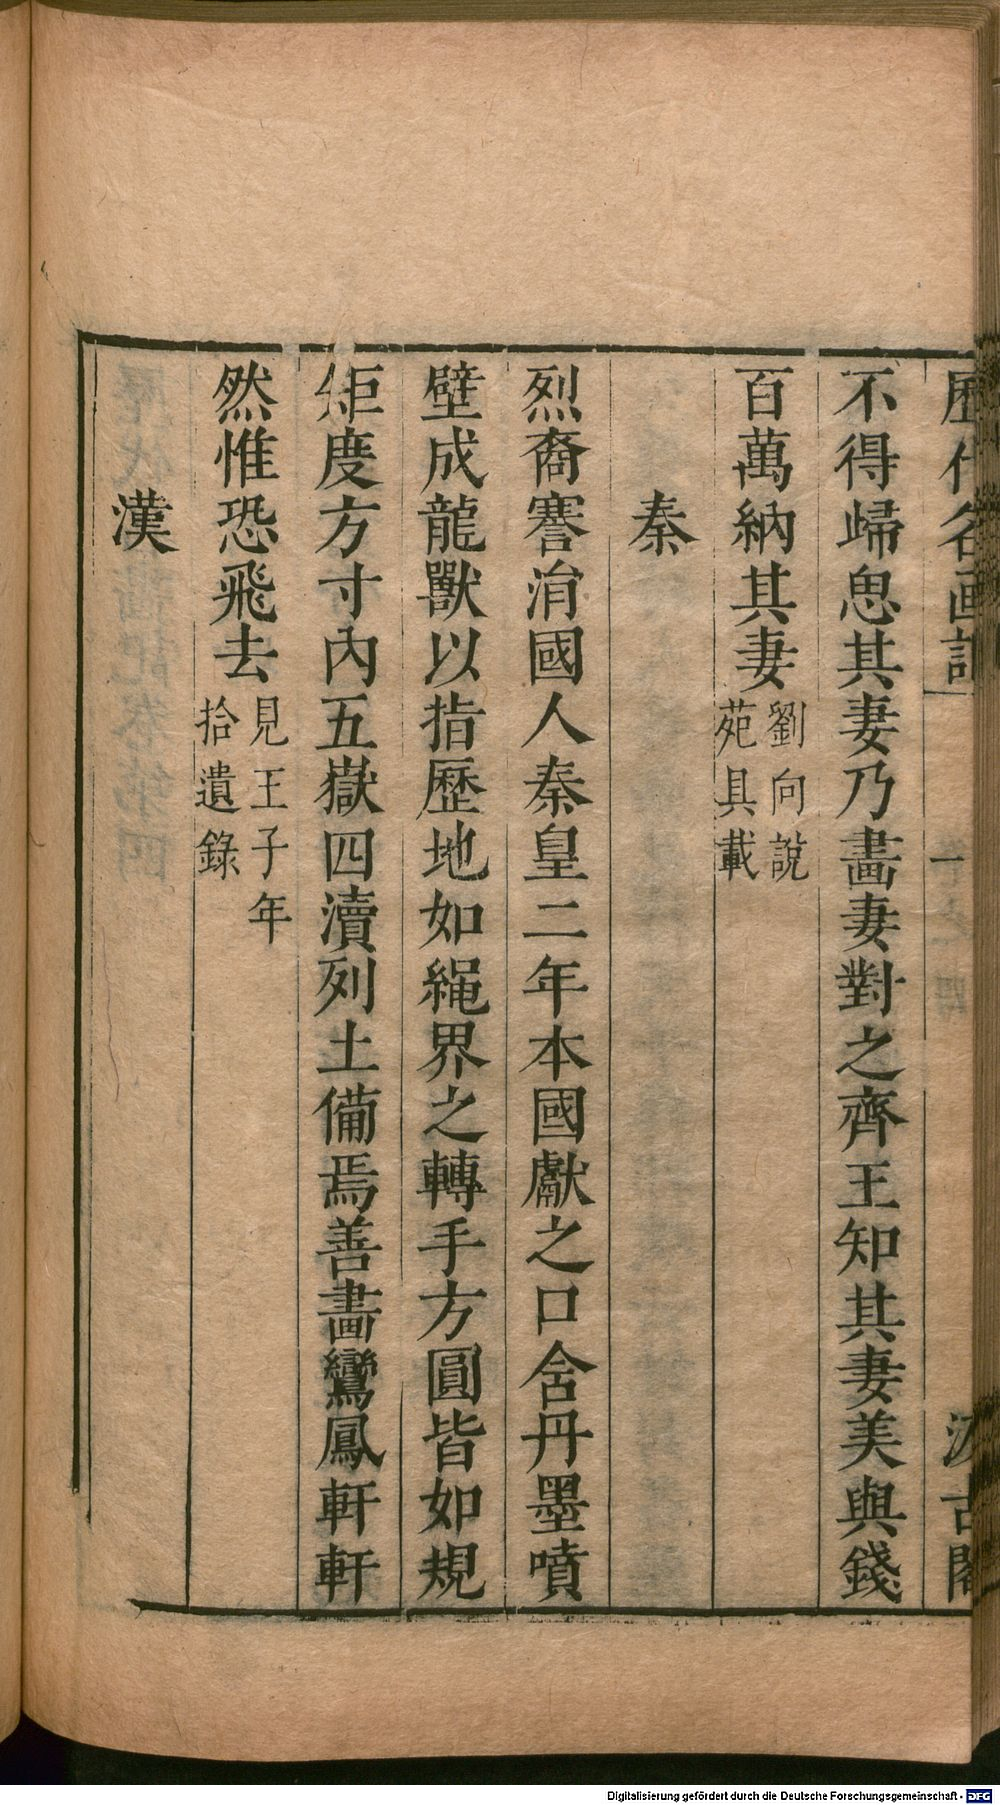 歷代名画記 汲古閣
不得歸思其妻乃畵妻對之齊王知其妻美與錢
百萬納其妻劉向說
苑具載
秦
烈裔謇涓國人秦皇二年本國獻之口含丹墨噴
壁成龍獸以指歷地如繩界之轉手方圓皆如規
矩度方寸內五嶽四瀆列土備焉善畵鸞鳳軒軒
然惟恐飛去見王子年
拾遺錄
漢
Digitalisierung gefördert durch die Deutsche Forschungsgemeinschaft - DFG